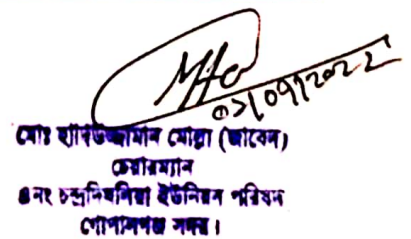 ০১/০৭/২০২২
মোঃ হাবিউজ্জামান মোল্লা (জাবেদ)
চেয়ারম্যান
৪নং চন্দ্রদিঘলিয়া ইউনিয়ন পরিষদ
গোপালগঞ্জ সদর।